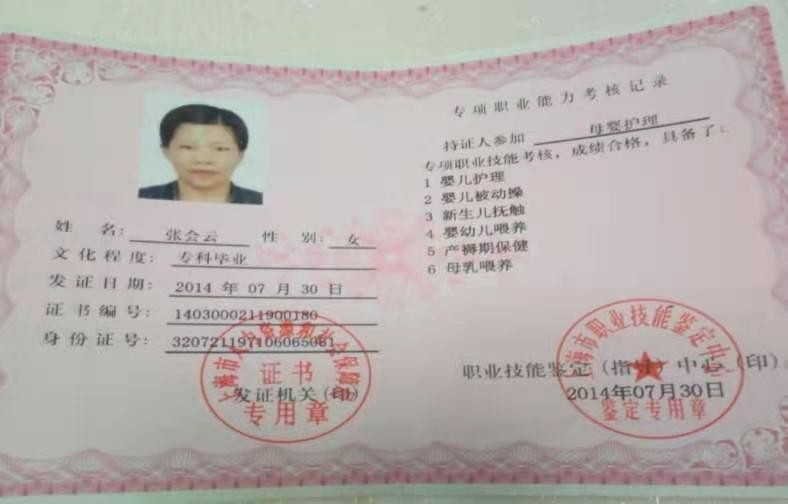 姓 名: 张会云 性 别: 女
文化程度: 专科毕业
发证日期: 2014 年 07 月 30 日
证书编号: 1403000211900180
身份证号: 320721197106065081
证书
发证机关(印)
专用章
专项职业能力考核记录
持证人参加 母婴护理
专项职业技能考核，成绩合格，具备了:
1 婴儿护理
2 婴儿被动操
3 新生儿抚触
4 婴幼儿喂养
5 产褥期保健
6 母乳喂养
海市职业技能鉴定中心
职业技能鉴定(指 )中心(印)
2014年07月30日
鉴定专用章